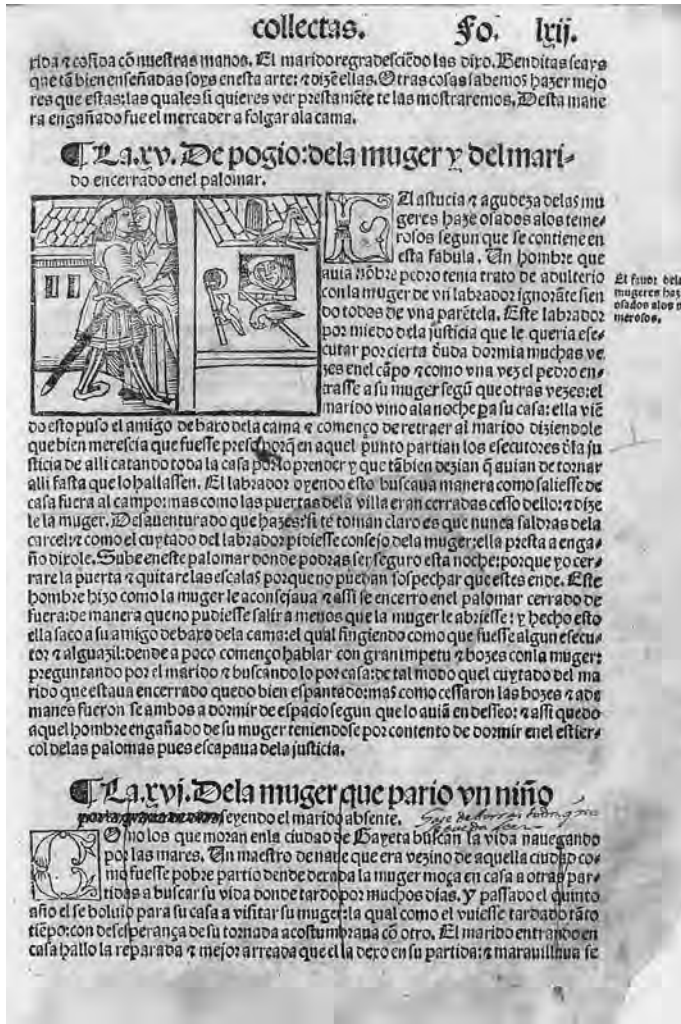 collectas. Fo. lxij.
rida ⁊ cosida cõ nuestras manos. El marido regradesciẽdo las dixo. Benditas seays
que tã bien enseñadas soys enesta arte: ⁊ dizẽ ellas. Otras cosas sabemos hazer mejo
res que estas: las quales si quieres ver prestamẽte te las mostraremos. Desta mane
ra engañado fue el mercader a folgar ala cama.
¶ La.xv. De pogio: dela muger y del mari-
do encerrado enel palomar.
LA astucia ⁊ agudeza delas mu
geres haze osados alos teme-
rosos segun que se contiene en
esta fabula. Un hombre que
auia nõbre pedro tenia trato de adulterio
con la muger de vn labrador ignorãte sien
do todos de vna parẽtela. Este labrador
por miedo dela justicia que le queria ese-
cutar por cierta d̃uda dormia muchas ve
zes enel cãpo ⁊ como vna vez el pedro en-
trasse a su muger segũ que otras vezes: el
marido vino ala noche p̱a su casa: ella viẽ
El fauor dela
mugeres haz
osados alos
merosos.
do esto puso el amigo debaxo dela cama ⁊ començo de retraer al marido diziendole
que bien merescia que fuesse preso porq̃ en aquel punto partian los esecutores d̃la ju
sticia de alli catando toda la casa por lo prender y que tãbien dezian q̃ auian de tornar
alli fasta que lo hallassen. El labrador oyendo esto buscaua manera como saliesse de
casa fuera al campo: mas como las puertas dela villa eran cerradas cesso dello: ⁊ dize
le la muger. Desauenturado que hazes: si te toman claro es que nunca saldras dela
carcel: ⁊ como el cuytado del labrador pidiesse consejo dela muger: ella presta a enga-
ño dixole. Sube eneste palomar donde podras ser seguro esta noche: porque yo cer-
rare la puerta ⁊ quitare las escalas porque no puedan sospechar que estes ende. Este
hombre hizo como la muger le aconsejaua ⁊ assi se encerro enel palomar cerrado de
fuera: de manera que no pudiesse salir a menos que la muger le abriesse: y hecho esto
ella saco a su amigo debaxo dela cama: el qual fingiendo como que fuesse algun esecu-
tor ⁊ alguazil: dende a poco començo hablar con gran impetu ⁊ bozes con la muger:
preguntando por el marido ⁊ buscando lo por casa: de tal modo quel cuytado del ma
rido que estaua encerrado quedo bien espantado: mas como cessaron las bozes ⁊ ade
manes fueron se ambos a dormir de espacio segun que lo auiã en desseo: ⁊ assi quedo
aquel hombre engañado de su muger teniendose por contento de dormir enel estier-
col delas palomas pues escapaua dela justicia.
¶ La.xvj. Dela muger que pario vn niño
seyendo el marido absente.
COmo los que moran enla ciudad de Gayeta buscan la vida nauegando
por las mares. Un maestro de naue que era vezino de aquella ciudad co-
mo fuesse pobre partio dende dexada la muger moça en casa a otras par-
tidas a buscar su vida donde tardo por muchos dias. Y passado el quinto
año el se boluio para su casa a visitar su muger: la qual como el vuiesse tardado tãto
tiẽpo: con desesperança de su tornada acostumbraua cõ otro. El marido entrando en
casa hallo la reparada ⁊ mejor arreada que el la dexo en su partida: ⁊ marauillaua se